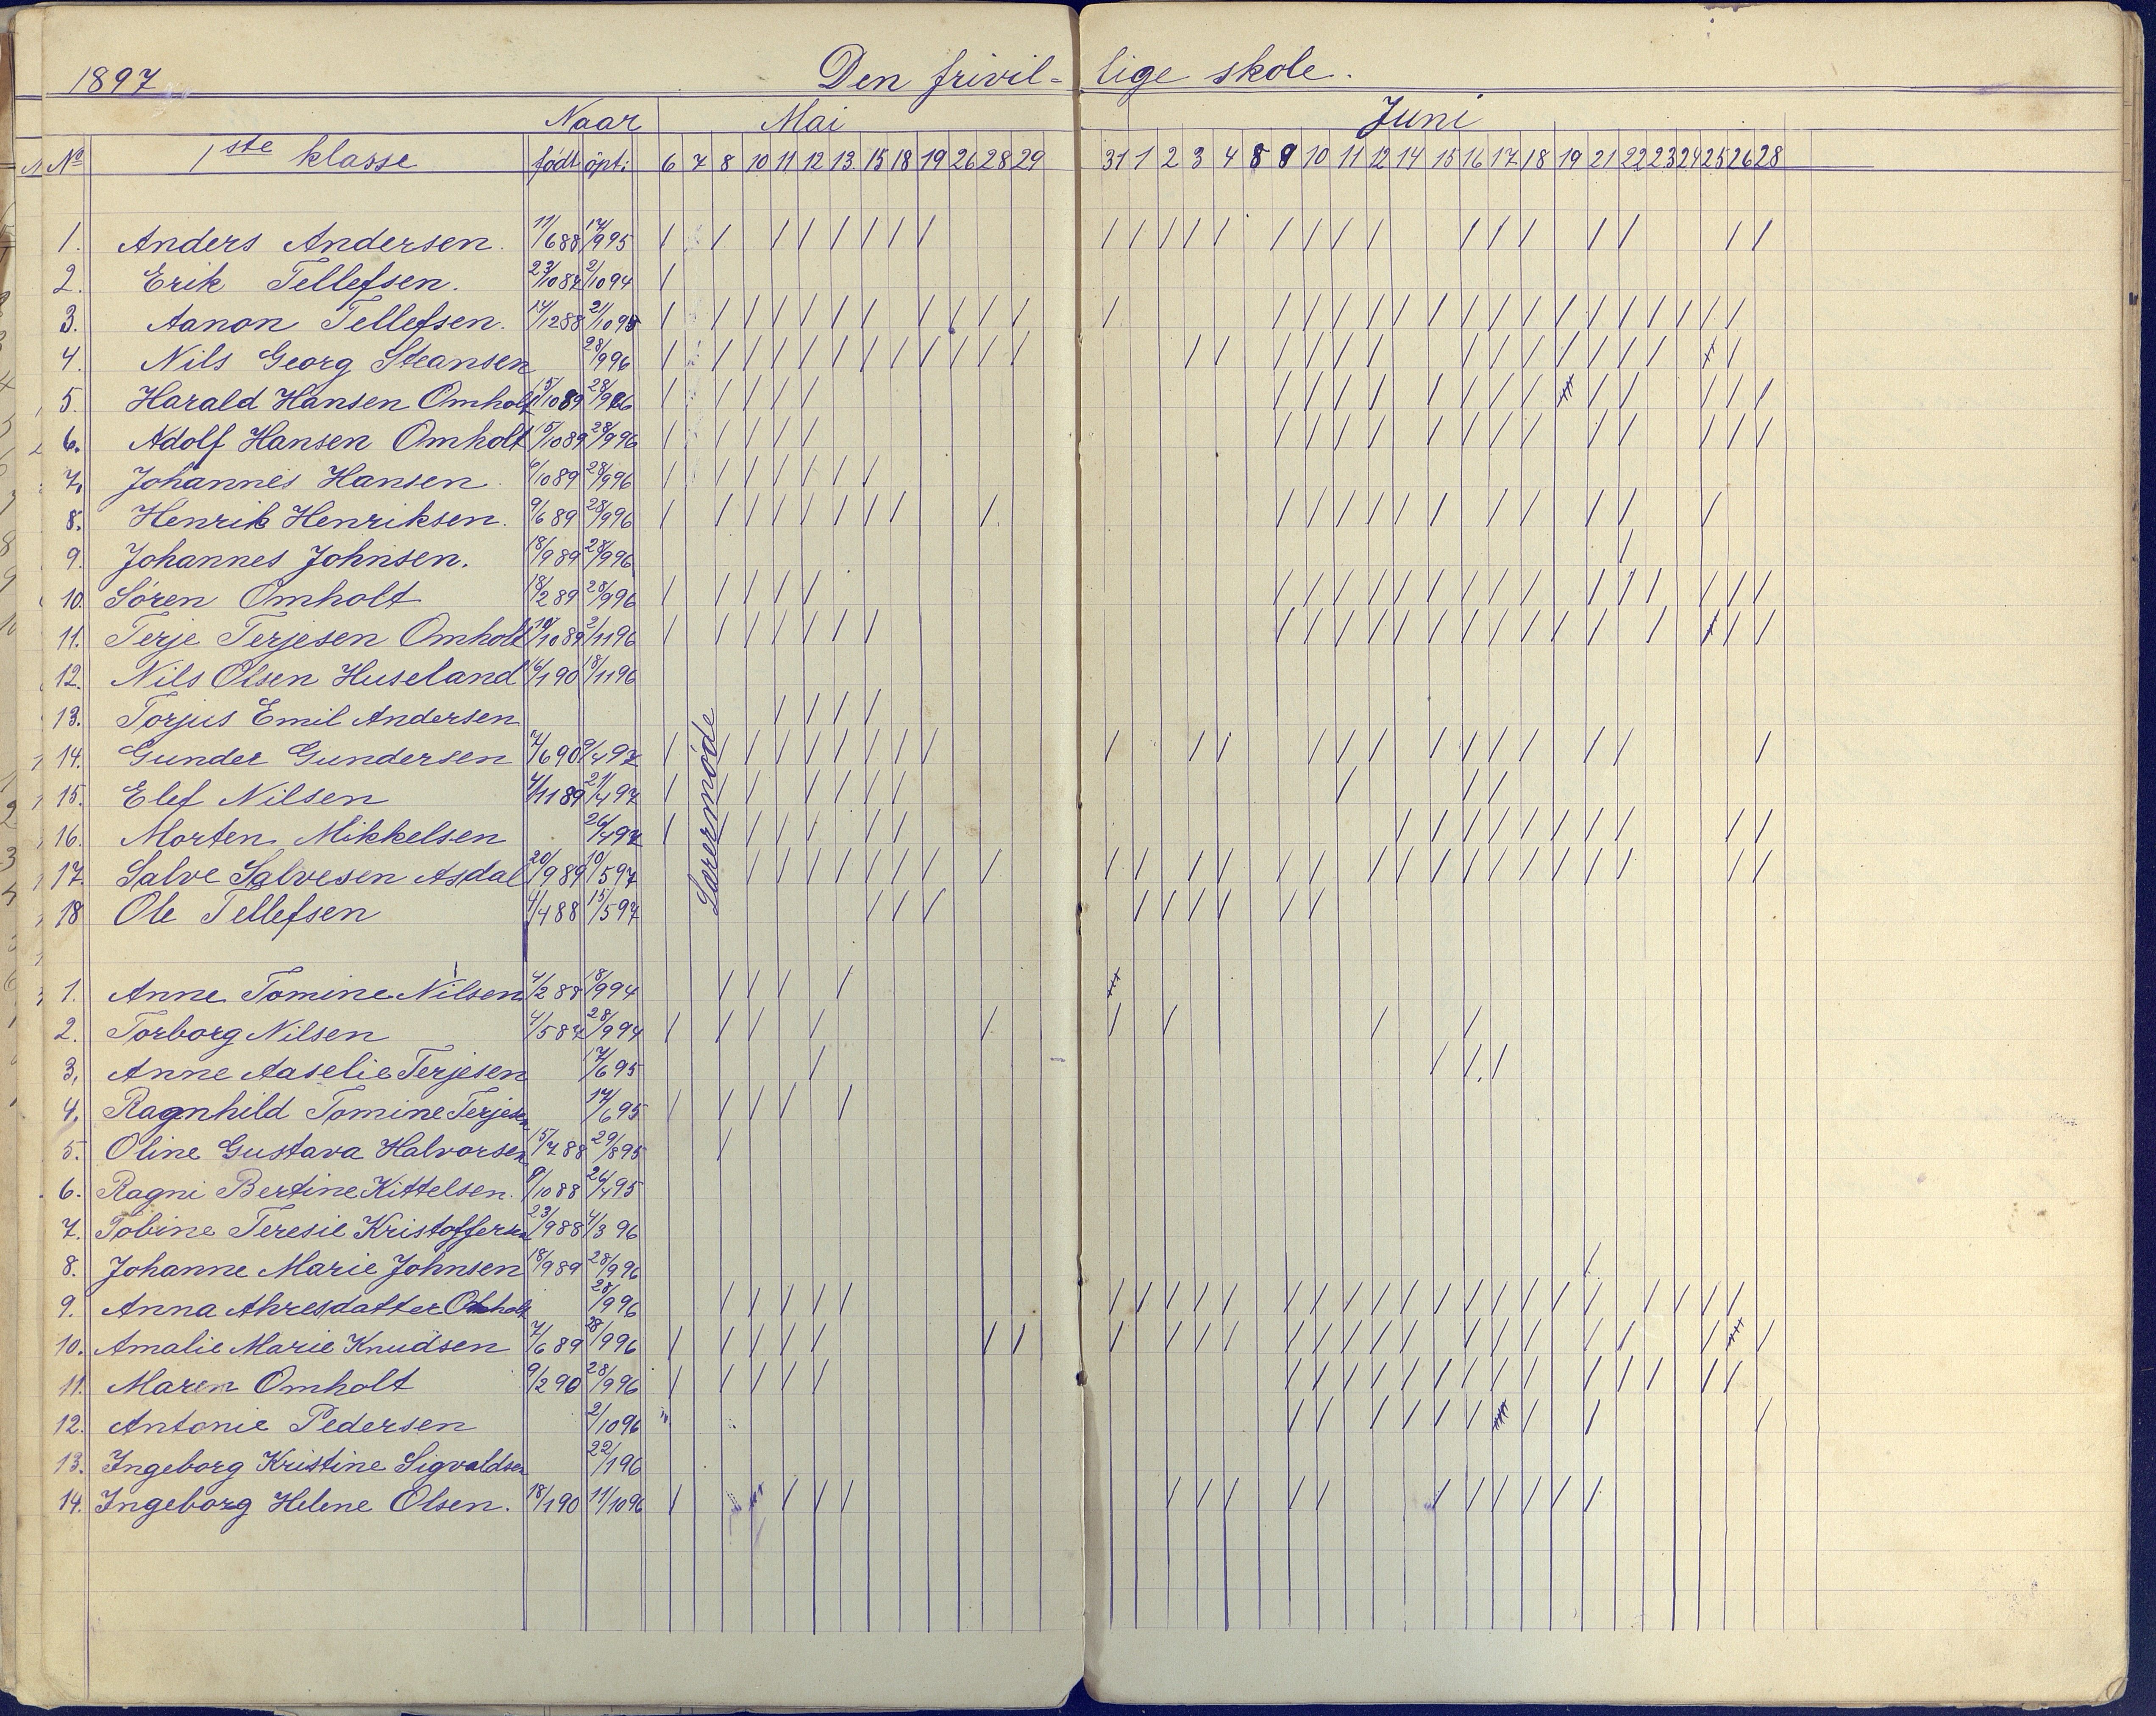 1897 Den frivil- lige skole.
Naar Mai Juni
No 1ste klasse født opt: 6 7 8 10 11 12 13. 15 18 19 26 28 29 31 1 2 3 4 8 9 10 11 12 14 15 16 17 18 19 21 22 23 24 25 26 28
1. Anders Andersen. 11/6 88 17/9 95
2. Erik Tellefsen. 23/10 87 2/10 94
3. Aanon Tellefsen. 14/12 88 2/10 95
4. Nils Georg Steansen 28/9 96
5. Harald Hansen Omholt 15/10 89 28/9 96
6. Adolf Hansen Omholt 15/10 89 28/9 96
7. Johannes Hansen 6/10 89 28/9 96
8. Henrik Henriksen. 9/6 89 28/9 96
9. Johannes Johnsen. 18/9 89 28/9 96
10. Søren Omholt 18/2 89 28/9 96
11. Terje Terjesen Omholt 10/10 89 2/11 96
12. Nils Olsen Huseland 16/1 90 18/11 96
13. Torjus Emil Andersen
14. Gunder Gundersen 7/6 90 9/4 97
15. Elef Nilsen 4/11 89 21/4 97
16. Morten Mikkelsen 26/4 97
17. Salve Salvesen Asdal 20/9 89 10/5 97
18 Ole Tellefsen 4/4 88 15/5 97
Lærermøde
1. Anne Tomine Nilsen 4/2 88 18/9 94
2. Torborg Nilsen 4/5 87 28/9 94
3. Anne Aaselie Terjesen 17/6 95
4. Ragnhild Tomine Terjesen 17/6 95
5. Oline Gustava Halvorsen 15/7 88 29/8 95
6. Ragni Bertine Kittelsen. 8/10 88 26/4 95
7. Tobine Teresie Kristoffersen 23/9 88 4/3 96
8. Johanne Marie Johnsen 18/9 89 28/9 96
9. Anna Ahresdatter Omholt 28/9 96
10. Amalie Marie Knudsen 7/6 89 28/9 96
11. Maren Omholt 9/2 90 28/9 96
12. Antonie Pedersen 2/10 96
13. Ingeborg Kristine Sigvaldsen 22/1 96
14. Ingeborg Helene Olsen. 18/1 90 11/10 96